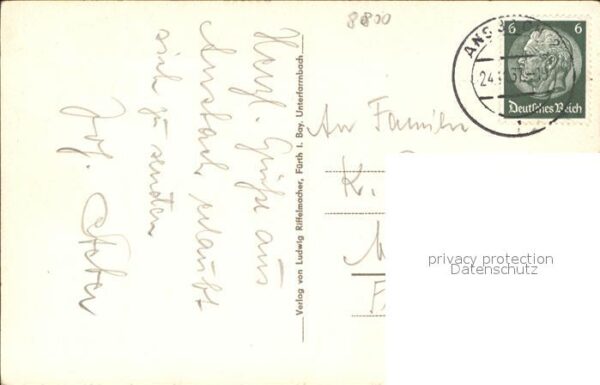 8800
Herzl. Grüße aus
Ansbach erlaubt
sich zu senden
Jos.
Verlag von Ludwig Riffelmacher, Fürth i. Bay. Unterfarrnbach
An Familie
K.
6 6
Deutsches Reich
ANSBACH
24
privacy protection
Datenschutz